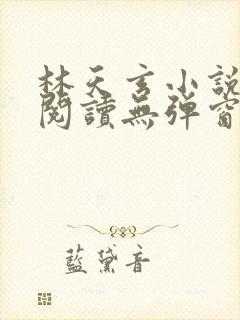 林天玄小說
閱讀無彈窗
藍黛音